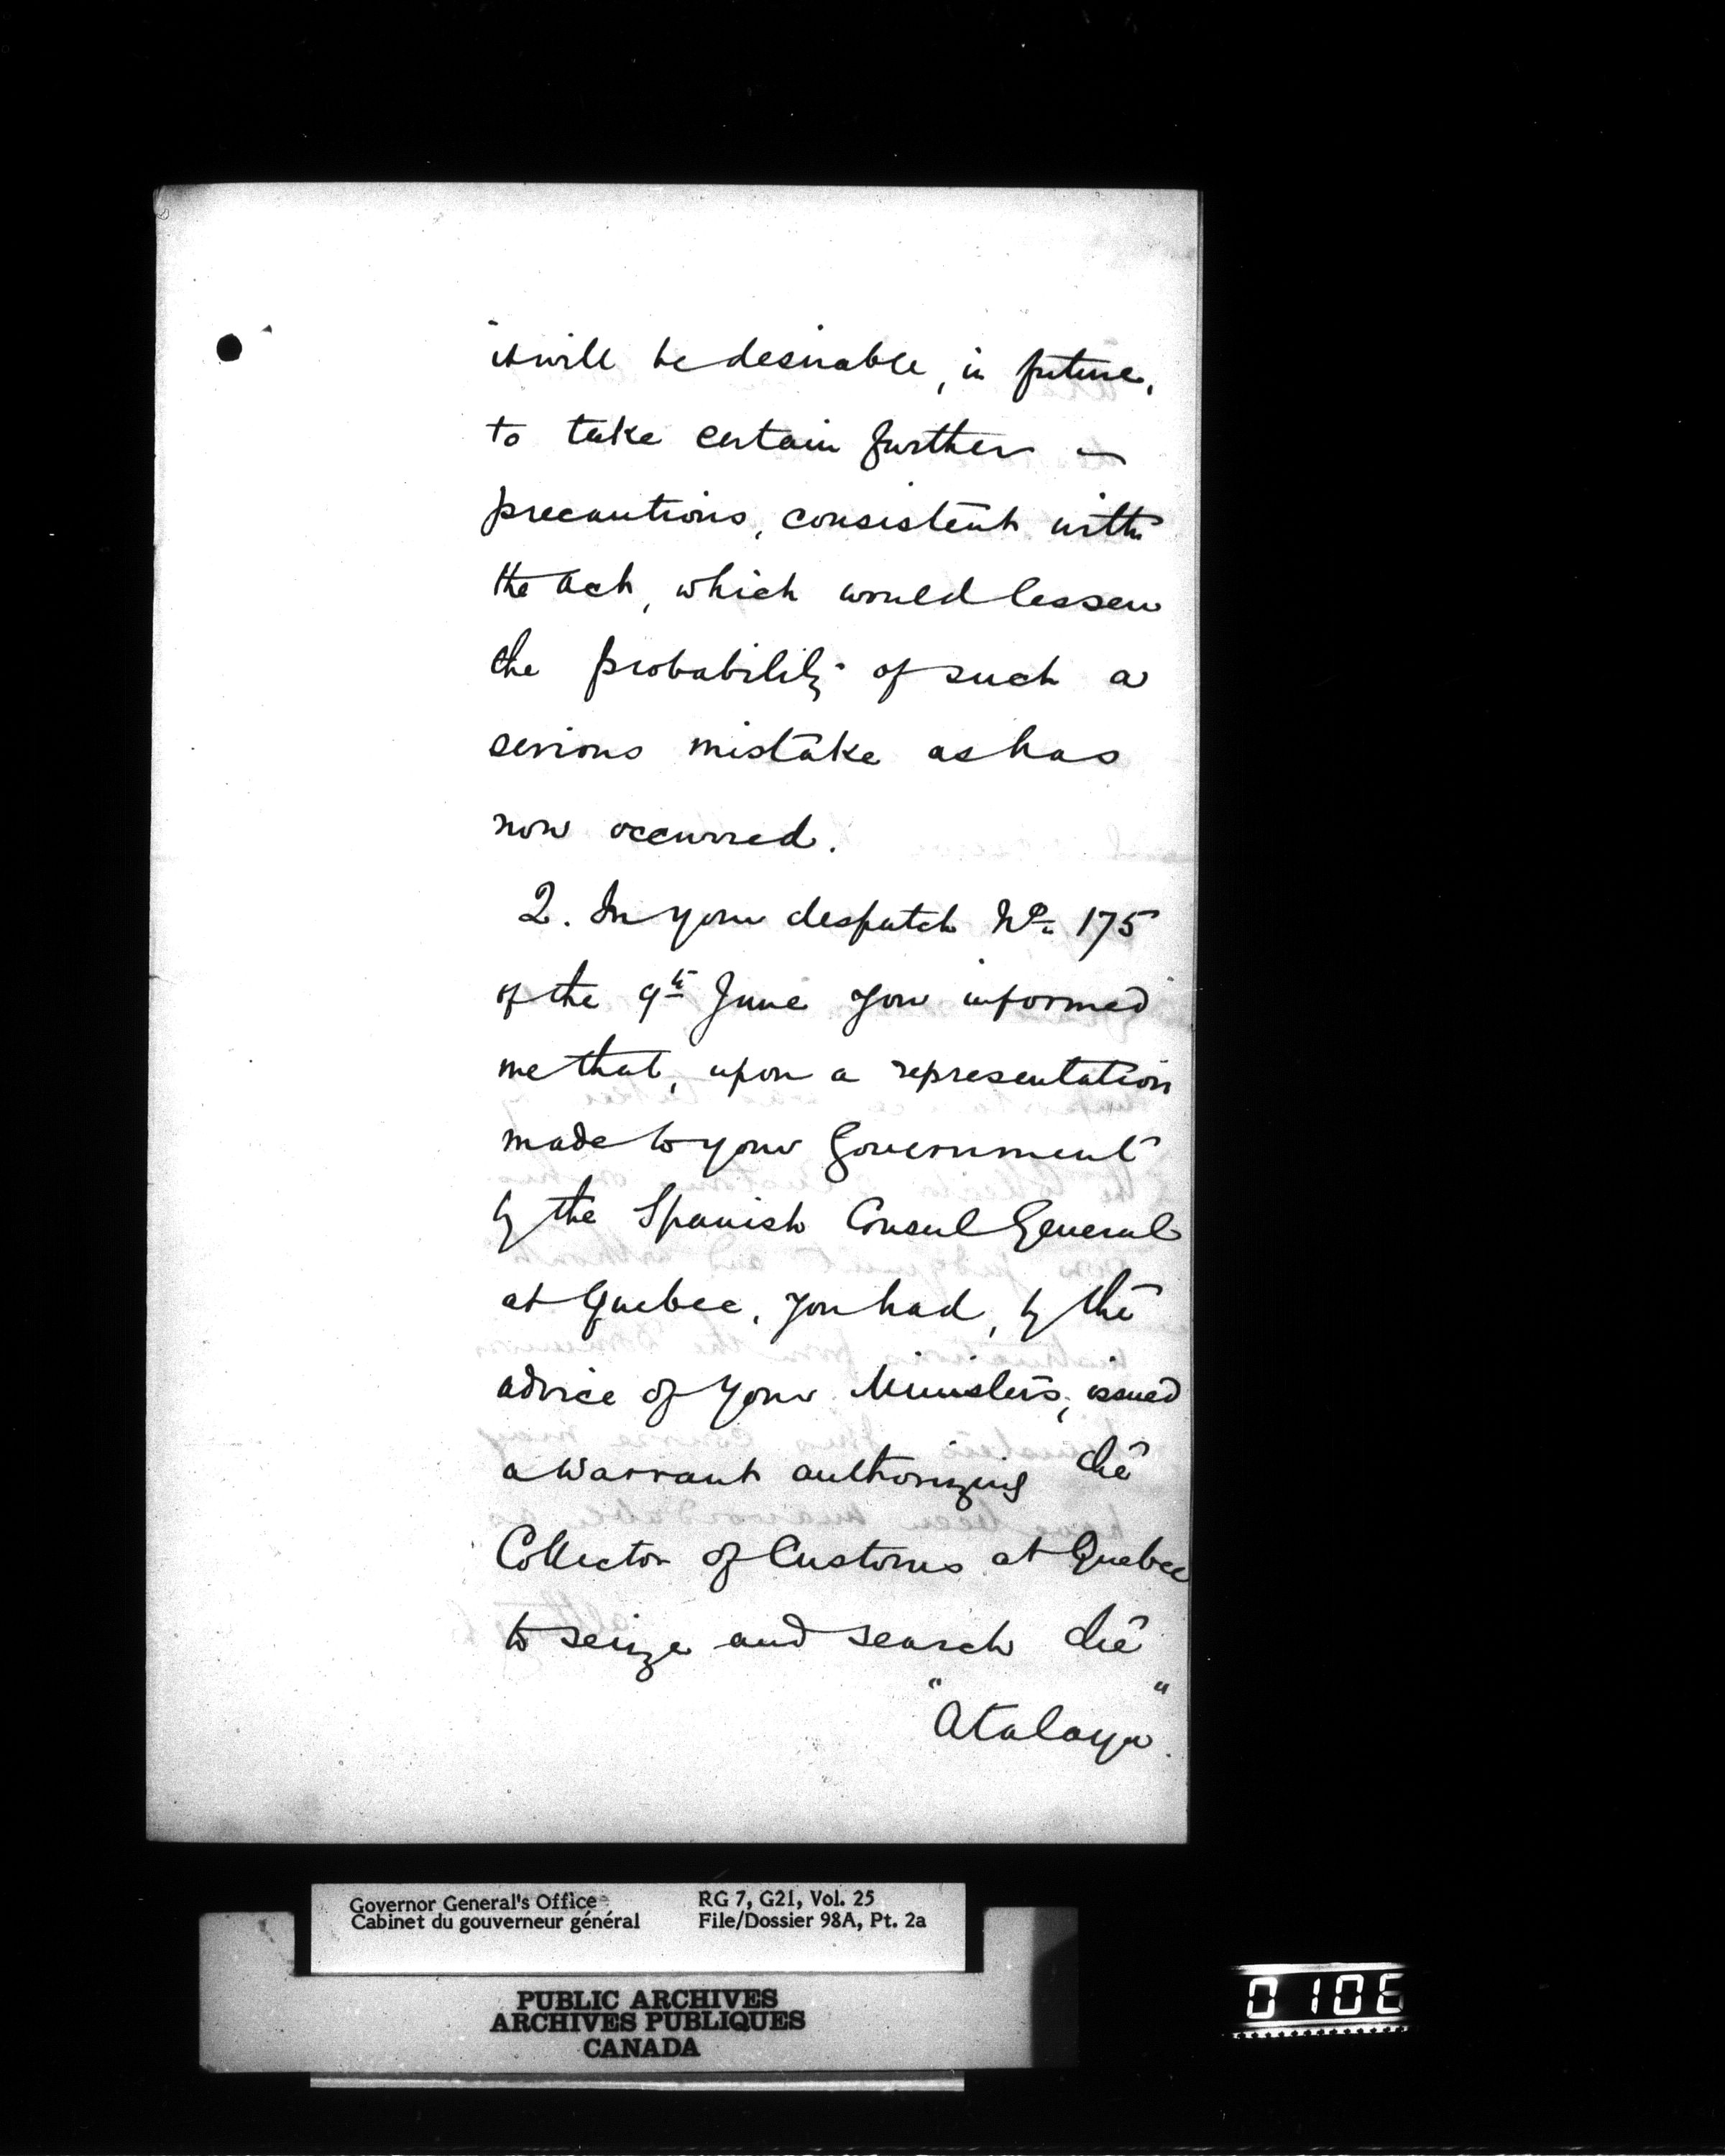 it will be desirable, in future,
to take certain further —
precautions, consistent with
the Act, which would lessen
the probability of such a
serious mistake as has
now occurred.
2. In your despatch No. 175
of the 9th June you informed
me that, upon a representation
made to your Government
by the Spanish Consul General
at Quebec, you had, by the
advice of your Ministers, issued
a warrant authorizing the
Collector of Customs at Quebec
to seize and search the
"Atalaya".
Governor General's Office
Cabinet du gouverneur général
RG 7, G21, Vol. 25
File/Dossier 98A, Pt. 2a
PUBLIC ARCHIVES
ARCHIVES PUBLIQUES
CANADA